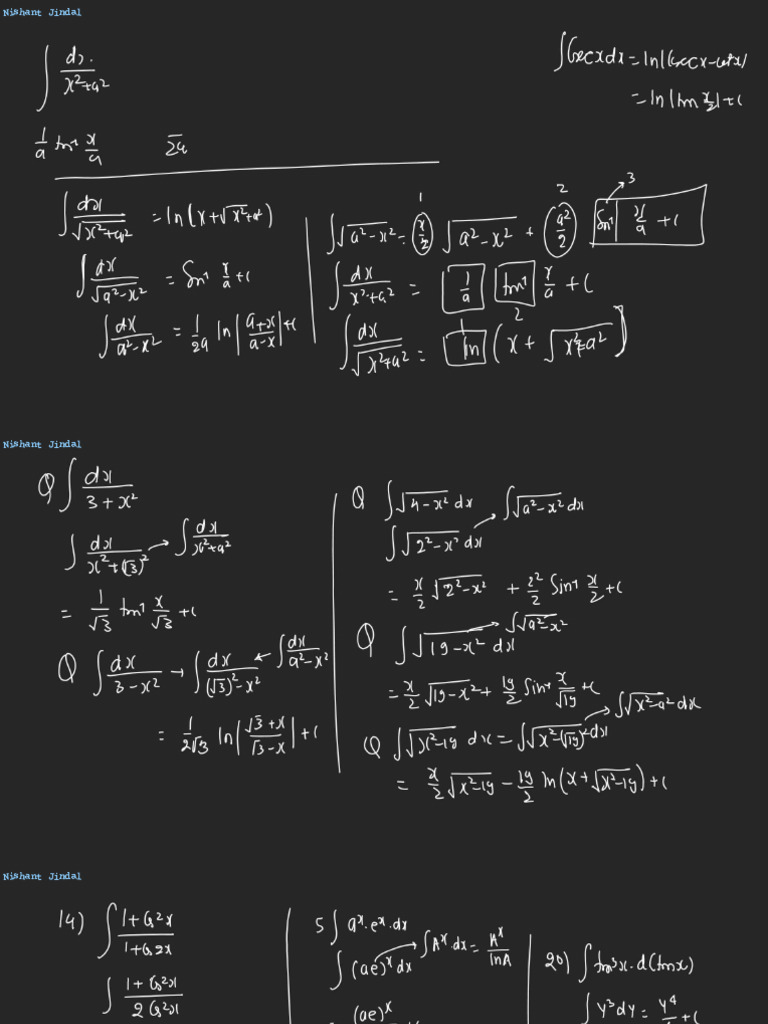 Nishant Jindal
∫ dx/(x²+a²)
1/a tan⁻¹ x/a
2a
∫Cosecx dx = ln|Cosecx-cotx|
= ln|tan x/2|+c
∫ dx/√(x²+a²) = ln(x+√(x²+a²))
∫ dx/√(a²-x²) = Sin⁻¹ x/a +c
∫ dx/(a²-x²) = 1/2a ln|(a+x)/(a-x)|+c
1 2 3
∫√(a²-x²) = x/2 √(a²-x²) + a²/2 Sin⁻¹ x/a +c
∫ dx/(x²+a²) = 1/a tan⁻¹ x/a +c
1 2
∫ dx/√(x²+a²) = ln (x+√(x²+a²))
Nishant Jindal
Q ∫ dx/(3+x²)
∫ dx/(x²+(√3)²) → ∫ dx/(x²+a²)
= 1/√3 tan⁻¹ x/√3 +c
Q ∫ dx/(3-x²) → ∫ dx/((√3)²-x²) ← ∫ dx/(a²-x²)
= 1/2√3 ln|(√3+x)/(√3-x)|+c
Q ∫√(4-x²) dx
∫√(2²-x²) dx → ∫√(a²-x²) dx
= x/2 √(2²-x²) + 2²/2 Sin⁻¹ x/2 +c
Q ∫√(19-x²) dx → ∫√(a²-x²)
= x/2 √(19-x²) + 19/2 Sin⁻¹ x/√19 +c
Q ∫√(x²-19) dx = ∫√(x²-(√19)²) dx → ∫√(x²-a²) dx
= x/2 √(x²-19) - 19/2 ln(x+√(x²-19))+c
Nishant Jindal
14) ∫ (1+Cos²x)/(1+Cos2x)
∫ (1+Cos²x)/(2Cos²x)
5 ∫ aˣ.eˣ.dx
∫ (ae)ˣ dx → ∫Aˣ.dx = Aˣ/lnA
(ae)ˣ
20) ∫ tan³x.d(tanx)
∫ y³dy = y⁴/ +c